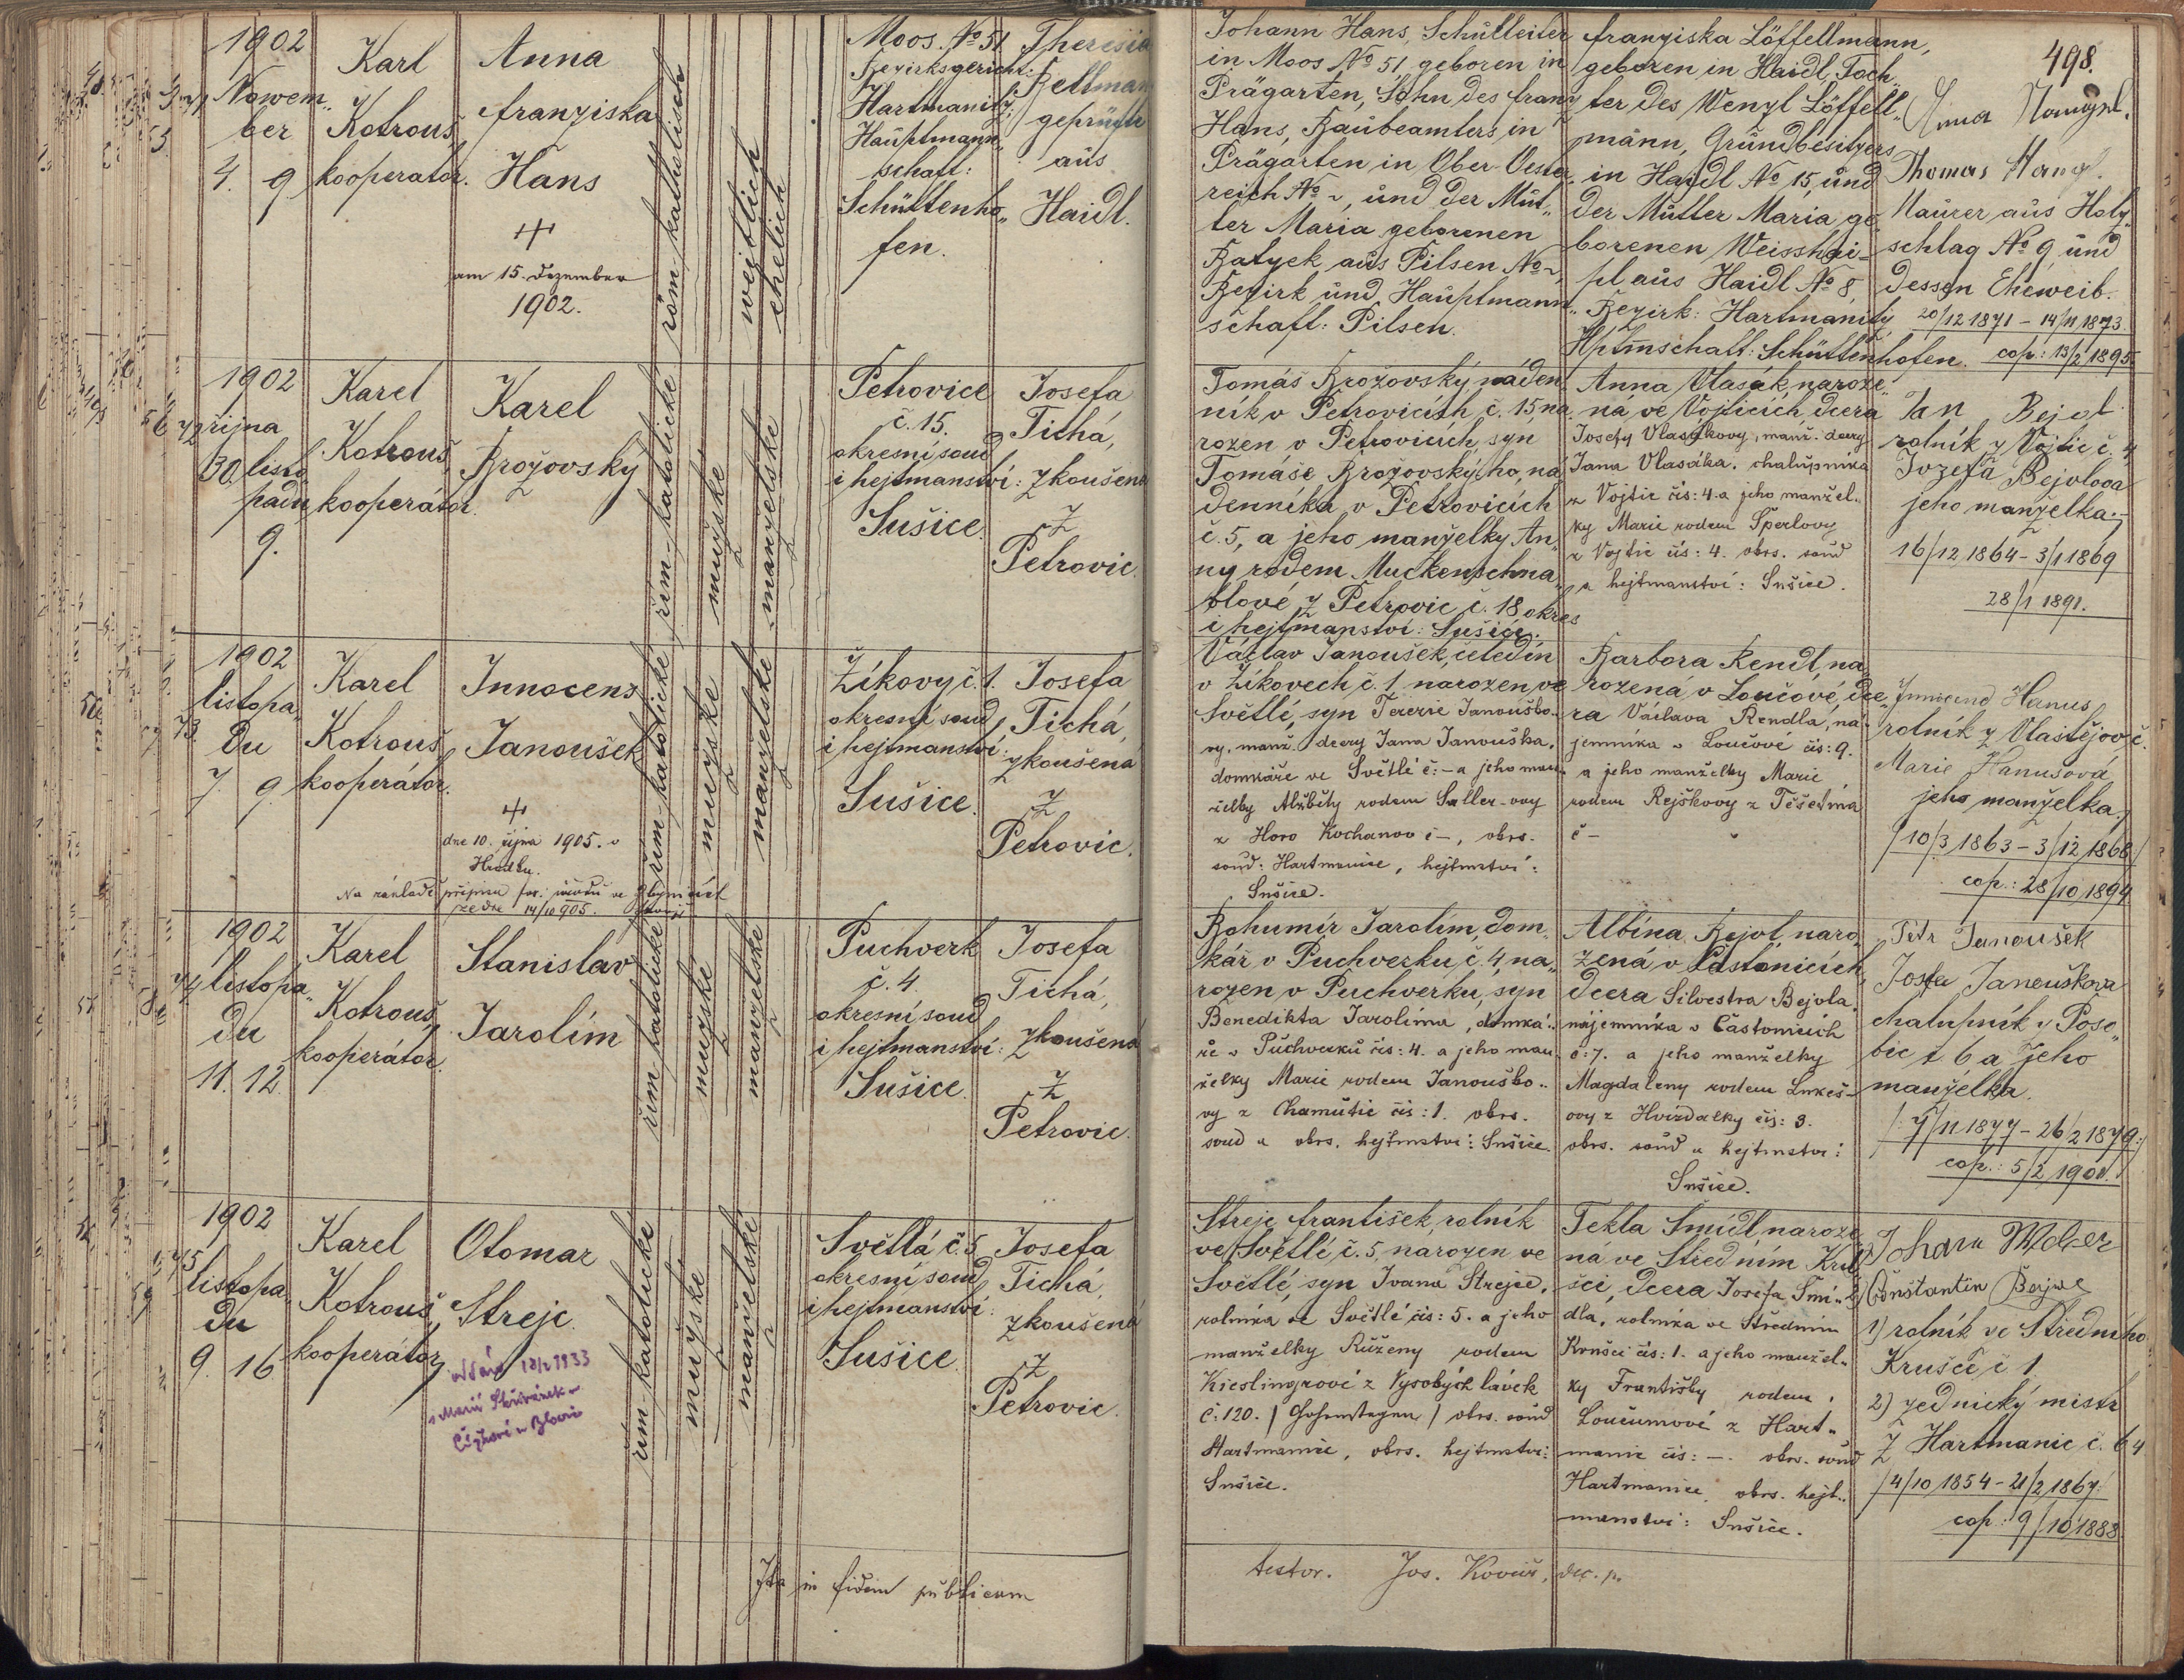 498.
1902
Novem„
ber
4. 9.
Karl
Kotrouš,
kooperator.
Anna
Franziska
Hans
am 15. Dezember
1902.
röm. katholisch
weiblich
ehelich
Moos. No 51
Bezirksgericht:
Hartmanitz,
Hauptmann„
schaft:
Schüttenho„
fen.
Theresia
geprüfte
aus
Haidl.
Johann Hans, Schulleiter
in Moos No 51 geboren in
Prägarten, Sohn des Franz
Hans, Baubeamters in
Prägarten in Ober-Oester„
reich No ~, und der Mut„
ter Maria geborenen
Batyek aus Pilsen No ~
Bezirk und Hauptmann„
schaft: Pilsen.
Franziska Löffellmann,
geboren in Haidl, Toch„
ter des Wenzl Löffell„
mann, Grundbesitzers
in Haidl No 15, und
der Mutter Maria ge„
borenen Weisshäi„
pl aus Haidl No 8,
Bezirk: Hartmanitz
Hptmschaft: Schüttenhofen.
Anna
Thomas
Maurer aus Holz„
schlag No 9 und
dessen Eheweib.
20/12 1871 – 14/11 1873.
cop: 13/2 1895.
1902
72 října
30. listo
padu
9.
Karel
Kotrouš
kooperátor.
Karel
Brožovský
řím. katolické
mužské
manželské
Petrovice
č. 15.
okresní soud
i hejtmanství:
Sušice.
Josefa
Tichá,
zkoušená
z
Petrovic.
Tomáš Brožovský, náden„
ník v Petrovicích č. 15, na„
rozen v Petrovicích, syn
Tomáše Brožovskýho, ná„
denníka v Petrovicích
č. 5, a jeho manželky An„
ny rodem Muckenschna„
blové z Petrovic č. 18 okres
i hejtmanství: Sušice.
Anna Vlasák, naroze„
ná ve Vojticích, dcera
Josefy Vlasákovy, manž. dcery
Jana Vlasáka, chalupníka
z Vojtic čís: 4. a jeho manžel„
ky Marie rodem Šperlovy
z Vojtic čís: 4. okrs. soud
a hejtmanství: Sušice.
Jan Bejvl
rolník z Vojtic č. 4
Jozefa Bejvlova
jeho manželka.
16/12 1864 – 3/1 1869
28/1 1891.
1902
73. listopa„
du
7. 9.
Karel
Kotrouš
kooperátor.
Innocens
Janoušek
dne 10. října 1905. v
Hrádku.
Na základě přípisu far. úřadu ve
ze dne 14/10 905.
řím. katolické
mužské
manželské
Žíkovy č. 1.
okresní soud
i hejtmanství:
Sušice.
Josefa
Tichá,
zkoušená
z
Petrovic.
Václav Janoušek, čeledín
v Žíkovech č. 1 narozen ve
Světlé, syn Terezie Janouško„
vy, manž. dcery Jana Janouška,
domkáře ve Světlé č: – a jeho man„
želky Alžběty rodem Saller-ovy
z Horo Kochanov č –, okrs.
soud: Hartmanice, hejtmství:
Sušice.
Barbora Rendl, na„
rozená v Loučové, dce„
ra Václava Rendla, ná„
jemníka v Loučové čís: 9.
a jeho manželky Marie
rodem Rejškovy z Těšetína
č –
Innocenc Hanus
rolník z Vlastějov č.
Marie Hanusová
jeho manželka
/10/3 1863 – 3/12 1868/
cop.: 28/10 1894
1902
74 listopa„
du
11. 12.
Karel
Kotrouš,
kooperátor.
Stanislav
Jarolím
řím. katolické
mužské
manželské
Puchverk
č. 4.
okresní soud
i hejtmanství:
Sušice.
Josefa
Tichá,
zkoušená
z
Petrovic.
Bohumír Jarolím, dom„
kář v Puchverku č. 4, na„
rozen v Puchverku, syn
Benedikta Jarolíma, domká„
ře v Puchverku čís: 4. a jeho man„
želky Marie rodem Janouško„
vy z Chamutic čís: 1. okrs.
soud a okrs. hejtmství: Sušice.
Albína Bejvl, naro„
zená v Částonicích,
dcera Silvestra Bejvla,
nájemníka v Částonicích
č: 7. a jeho manželky
Magdaleny rodem Lukeš„
ovy z Hvízdalky čís: 3.
okrs. soud a hejtmství:
Sušice.
Petr Janoušek
Josefa Janouškova
chalupník z Poso„
bic č. 6 a jeho
manželka.
/: 7/11 1877 – 26/2 1879:/
cop.: 5/2 1901.
1902
75 listopa„
du
9. 16
Karel
Kotrouš,
kooperátor,
Otomar
Strejc.
oddán 18/2 1933
s Marií
řím. katolické
mužské
manželské
Světlá č. 5
okresní soud
i hejtmanství:
Sušice.
Josefa
Tichá,
zkoušená
z
Petrovic.
Strejc František, rolník
ve Světlé č. 5, narozen ve
Světlé, syn Ivana Strejce,
rolníka ve Světlé čís: 5. a jeho
manželky Růženy rodem
Kieslingrové z Vysokých lávek
č: 120. /Hohenstegen/ okrs. soud
Hartmanice, okrs. hejtmství:
Sušice.
Tekla Šmídl, naroze„
ná ve Středním Kru„
šci, dcera Josefa Šmí„
dla, rolníka ve Středním
Krušci čís: 1. a jeho manžel„
ky Františky rodem
Loučumové z Hart„
manic čís: –. okrs. soud
Hartmanice, okrs. hejt„
manství: Sušice.
Johann Weber
2) Constantin Bejwl
1) rolník ve Středního
Krušce č 1
2) zednický mistr
z Hartmanic č. 64
/4/10 1854 – 21/2 1867:
cop: 9/10 1888
Ita in fidem publicam
testor. Jos. Kovář, dec. p.